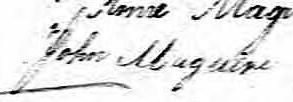 Anne Mag
John Maguire